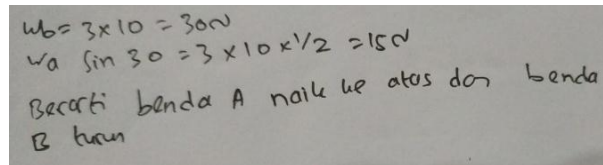 Wb = 3 x 10 = 30 N
Wa Sin 30 = 3 x 10 x 1/2 = 15 N
Berarti benda A naik ke atas dan benda
B turun